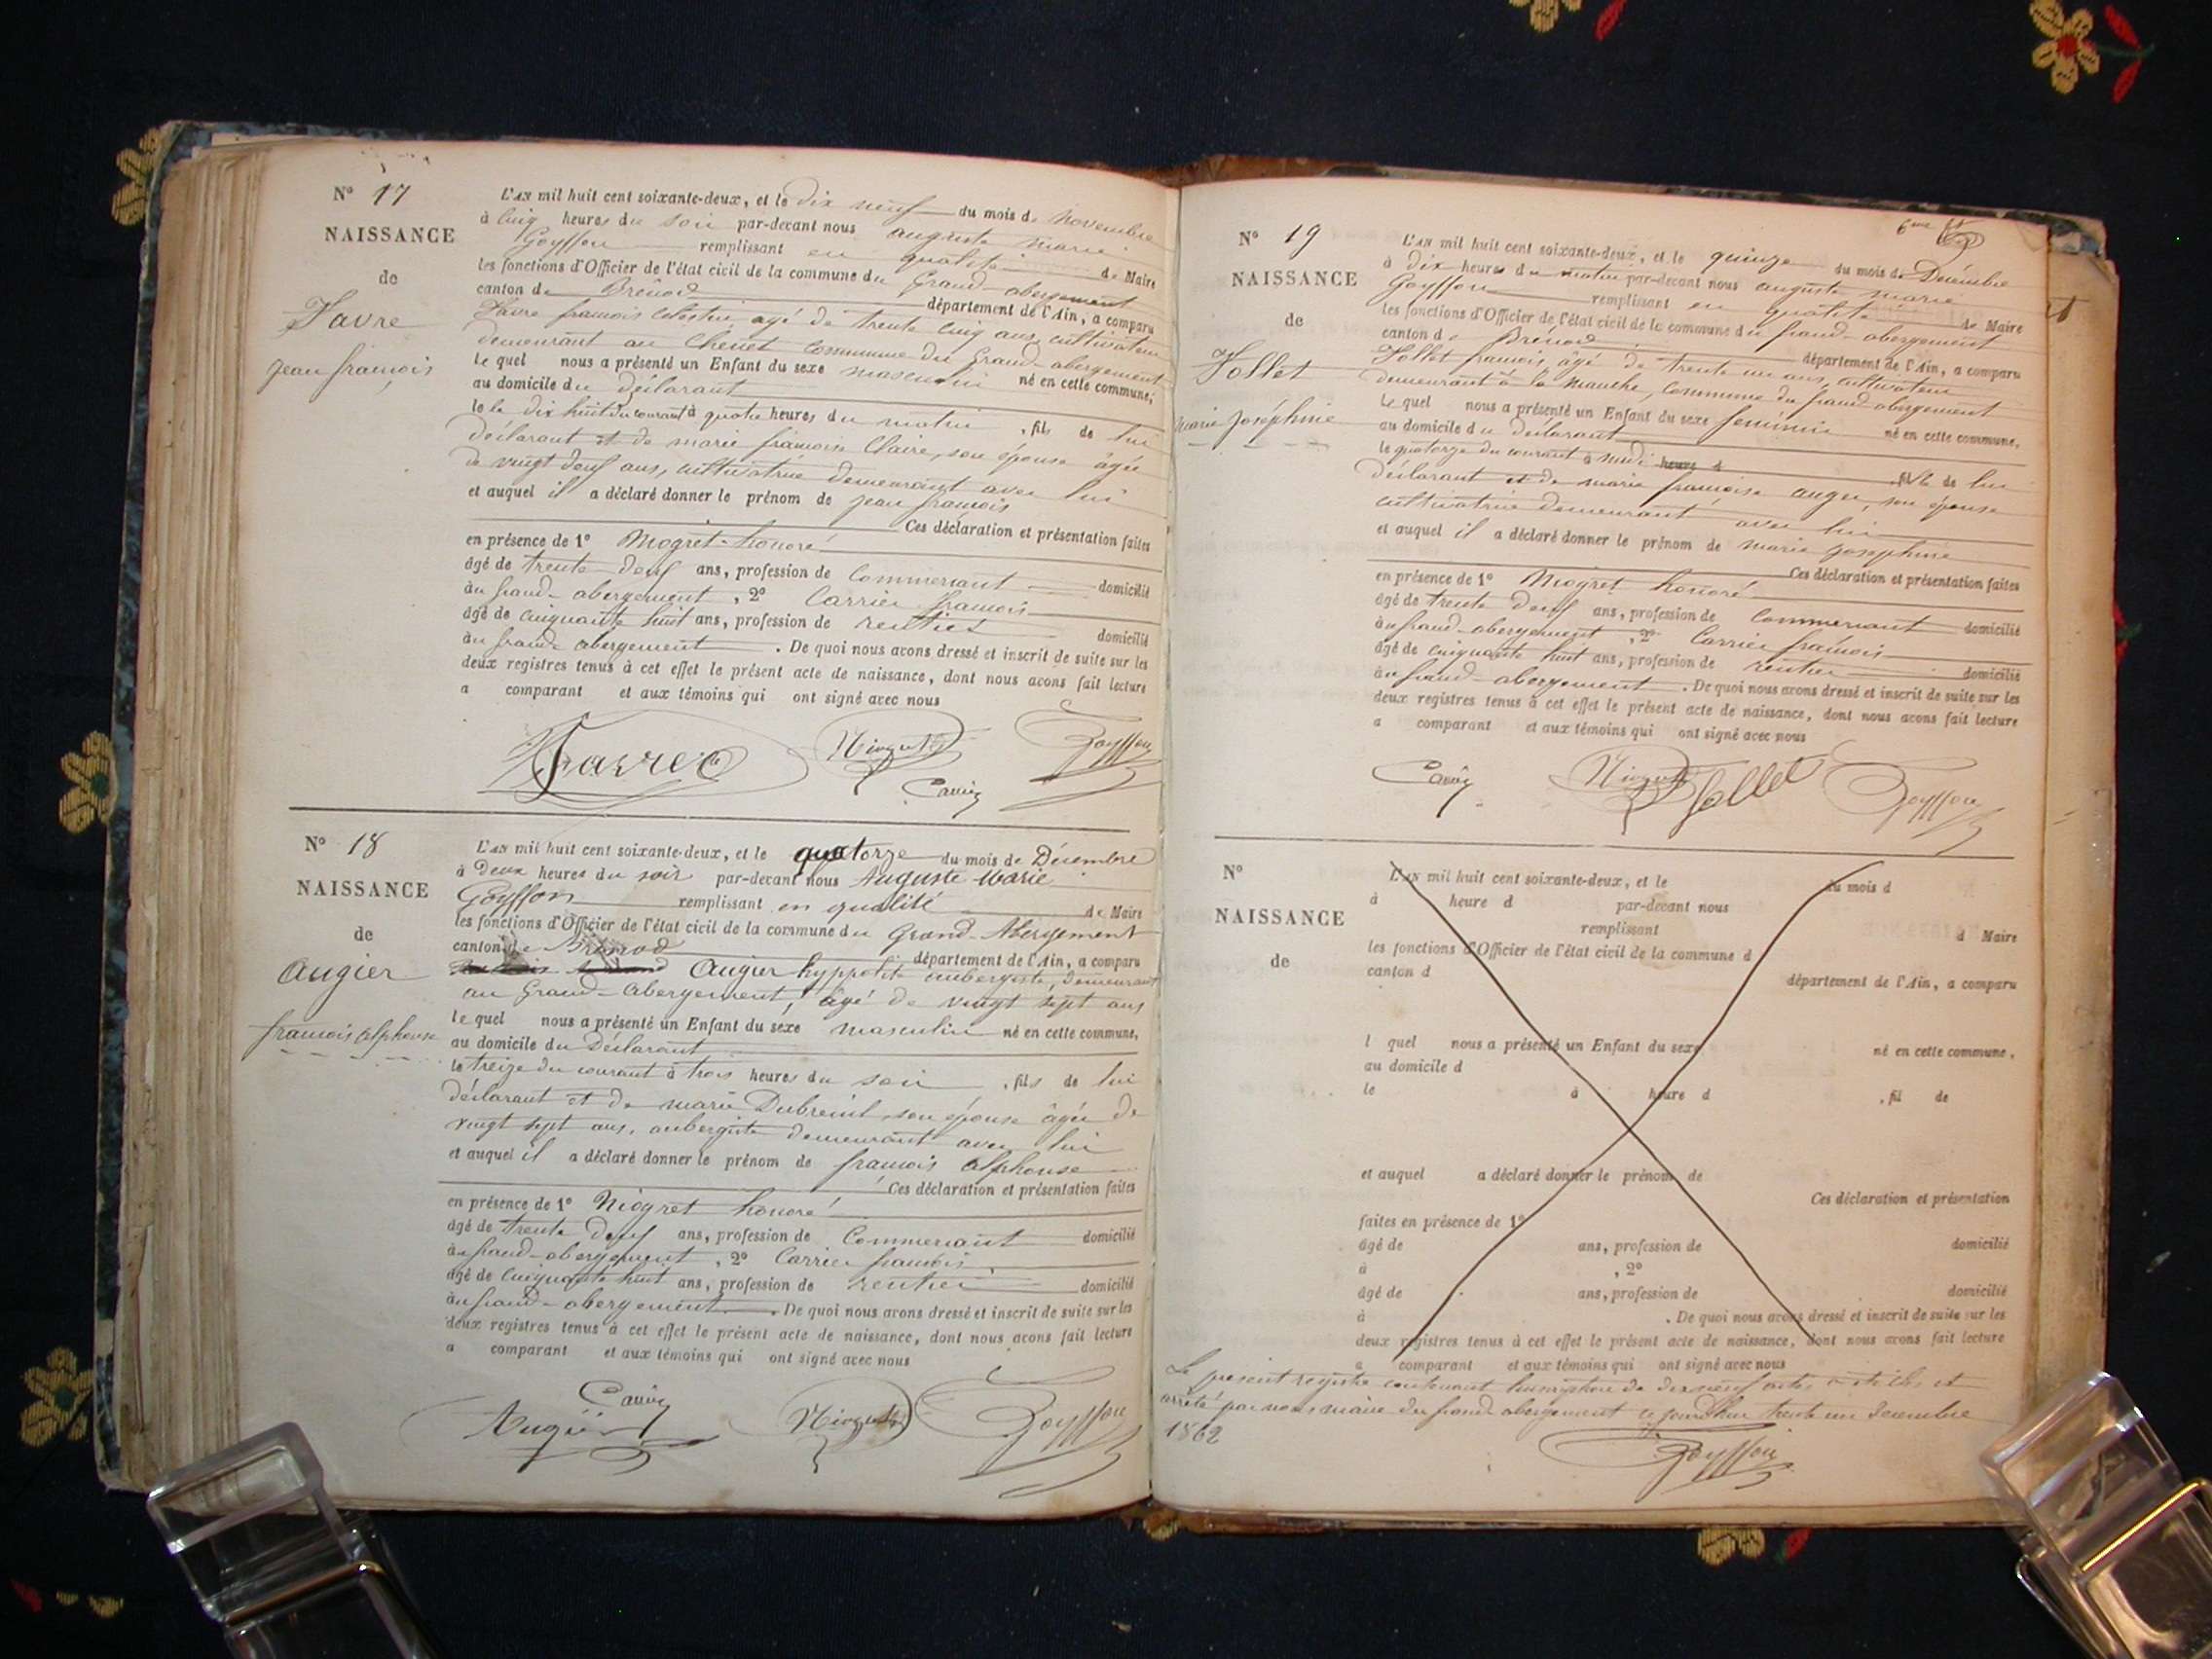 N° 17
NAISSANCE
de
Favre
jean françois
L'AN mil huit cent soixante-deux, et le dix neuf du mois de Novembre
à Cinq heures du soir par-devant nous auguste marie
Goyffon remplissant en qualité de Maire
les fonctions d'Officier de l'état civil de la commune du Grand-abergement
canton de Brénod département de l'Ain, a comparu
Favre françois Célestin agé de trente cinq ans, cultivateur
demeurant au Chenet commune du Grand-abergement
le quel nous a présenté un Enfant du sexe masculin né en cette commune,
au domicile du déclarant
le le dix huit du courant à quatre heures du matin , fils de lui
déclarant et de marie françoise Claire, son épouse âgée
de vingt deuf ans, cultivatrice demeurant avec lui
et auquel il a déclaré donner le prénom de jean françois
Ces déclaration et présentation faites
en présence de 1° Niogret honoré
âgé de trente deuf ans, profession de Commercant domicilié
au grand-abergement , 2° Carrier françois
âgé de cinquante huit ans, profession de rentier domicilié
au grand abergement . De quoi nous avons dressé et inscrit de suite sur les
deux registres tenus à cet effet le présent acte de naissance, dont nous avons fait lecture
a comparant et aux témoins qui ont signé avec nous
Favre Niogret Goyffon
Carrier
N° 18
NAISSANCE
de
Augier
françois alphonse
L'AN mil huit cent soixante-deux, et le quatorze du mois de Décembre
à Deux heures du soir par-devant nous Auguste Marie
Goyffon remplissant en qualité de Maire
les fonctions d'Officier de l'état civil de la commune du Grand-Abergement
canton de Brénod département de l'Ain, a comparu
Augier hyppolite aubergiste, demeurant
au Grand-abergement, âgé de vingt sept ans
le quel nous a présenté un Enfant du sexe masculin né en cette commune,
au domicile du Déclarant
le treize du courant à trois heures du soir , fils de lui
déclarant et de marie Dubreuil, son épouse âgée de
vingt sept ans, aubergiste demeurant avec lui
et auquel il a déclaré donner le prénom de françois alphonse
Ces déclaration et présentation faites
en présence de 1° Niogret honoré
âgé de trente deuf ans, profession de Commercant domicilié
au grand-abergement , 2° Carrier françois
âgé de cinquante huit ans, profession de rentier domicilié
au grand-abergement . De quoi nous avons dressé et inscrit de suite sur les
deux registres tenus à cet effet le présent acte de naissance, dont nous avons fait lecture
a comparant et aux témoins qui ont signé avec nous
Carrier
Augier Niogret Goyffon
6me
N° 19
NAISSANCE
de
Jollet
marie joséphine
L'AN mil huit cent soixante-deux, et le quinze du mois de Décembre
à dix heures du matin par-devant nous auguste marie
Goyffon remplissant en qualité de Maire
les fonctions d'Officier de l'état civil de la commune du grand-abergement
canton de Brénod département de l'Ain, a comparu
Jollet françois, âgé de trente un ans, cultivateur
demeurant à la manche, commune du grand abergement
le quel nous a présenté un Enfant du sexe féminin né en cette commune,
au domicile du déclarant
le quatorze du courant à midi heures d , fille de lui
déclarant et de marie françoise auger, son épouse
cultivatrice demeurant avec lui
et auquel il a déclaré donner le prénom de marie joséphine
Ces déclaration et présentation faites
en présence de 1° Niogret honoré
âgé de trente deuf ans, profession de commercant domicilié
au grand-abergement , 2° Carrier françois
âgé de cinquante huit ans, profession de rentier domicilié
au grand-abergement . De quoi nous avons dressé et inscrit de suite sur les
deux registres tenus à cet effet le présent acte de naissance, dont nous avons fait lecture
a comparant et aux témoins qui ont signé avec nous
Carrier Niogret Jollet Goyffon
N°
NAISSANCE
de
L'AN mil huit cent soixante-deux, et le du mois d
à heure d par-devant nous
remplissant d Maire
les fonctions d'Officier de l'état civil de la commune d
canton d département de l'Ain, a comparu
l quel nous a présenté un Enfant du sexe né en cette commune,
au domicile d
le à heure d , fil de
et auquel a déclaré donner le prénom de
Ces déclaration et présentation
faites en présence de 1°
âgé de ans, profession de domicilié
à , 2°
âgé de ans, profession de domicilié
à . De quoi nous avons dressé et inscrit de suite sur les
deux registres tenus à cet effet le présent acte de naissance, dont nous avons fait lecture
a comparant et aux témoins qui ont signé avec nous
Le présent registre contenant l'inscription de dix neuf actes et
arrêté par nous maire du grand abergement ce jourdhui trente un decembre
1862
Goyffon